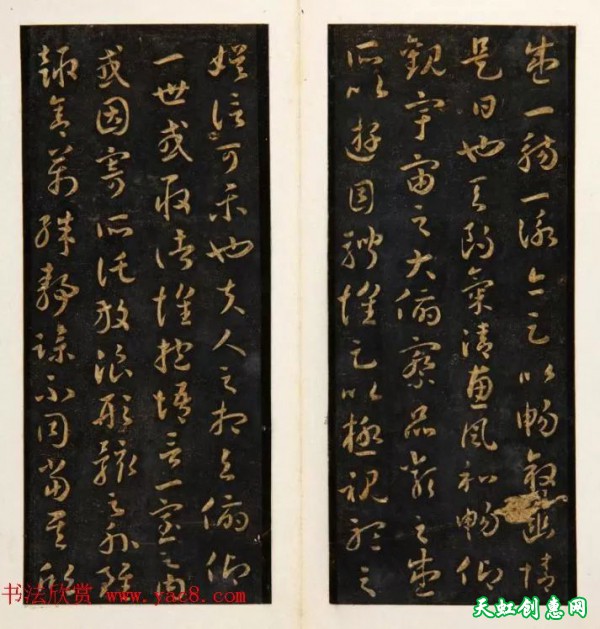 盛一觴一詠亦足以暢叙幽情
是日也天朗氣清惠風和暢仰
觀宇宙之大俯察品類之盛
所以遊目騁懷足以極視聽之
娱信可樂也夫人之相與俯仰
一世或取諸懷抱悟言一室之内
或因寄所託放浪形骸之外雖
趣舍萬殊靜躁不同當其欣
书法欣赏 www.yac8.com
天虹创意网